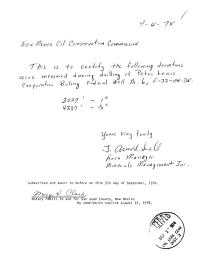 9-4-74
New Mexico Oil Conservation Commission
This is to certify the following deviations
were measured during drilling of Petro Lewis
Corporation Federal Well No. 6,
3027' - 1°
4337' -
Yours very truly
J. Arnold Snell
Area Manager
Minerals Management Inc.
Subscribed and sworn to before me this 5th day of September, 1974.
Mary E. Clark
Notary Public in and for San Juan County, New Mexico
My commission expires August 15, 1978.